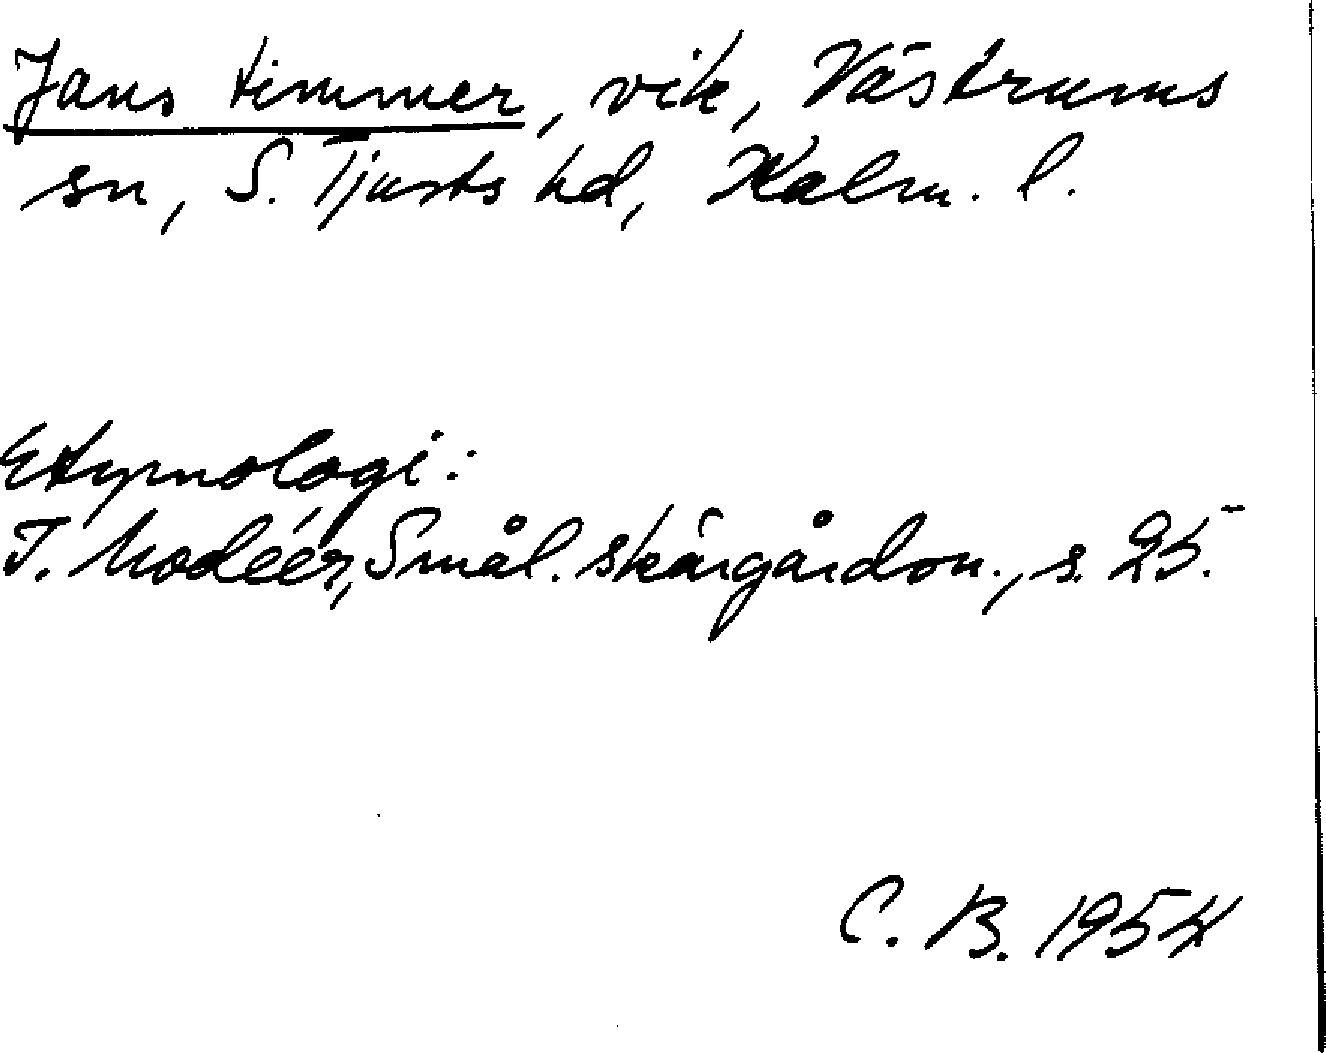 Jans timmer, vik, Västrums
sn, S. Tjusts hd, Kalm. l.
Etymologi:
I. Modéér, Smål. skärgårdsn., s. 25.
C. B. 1954